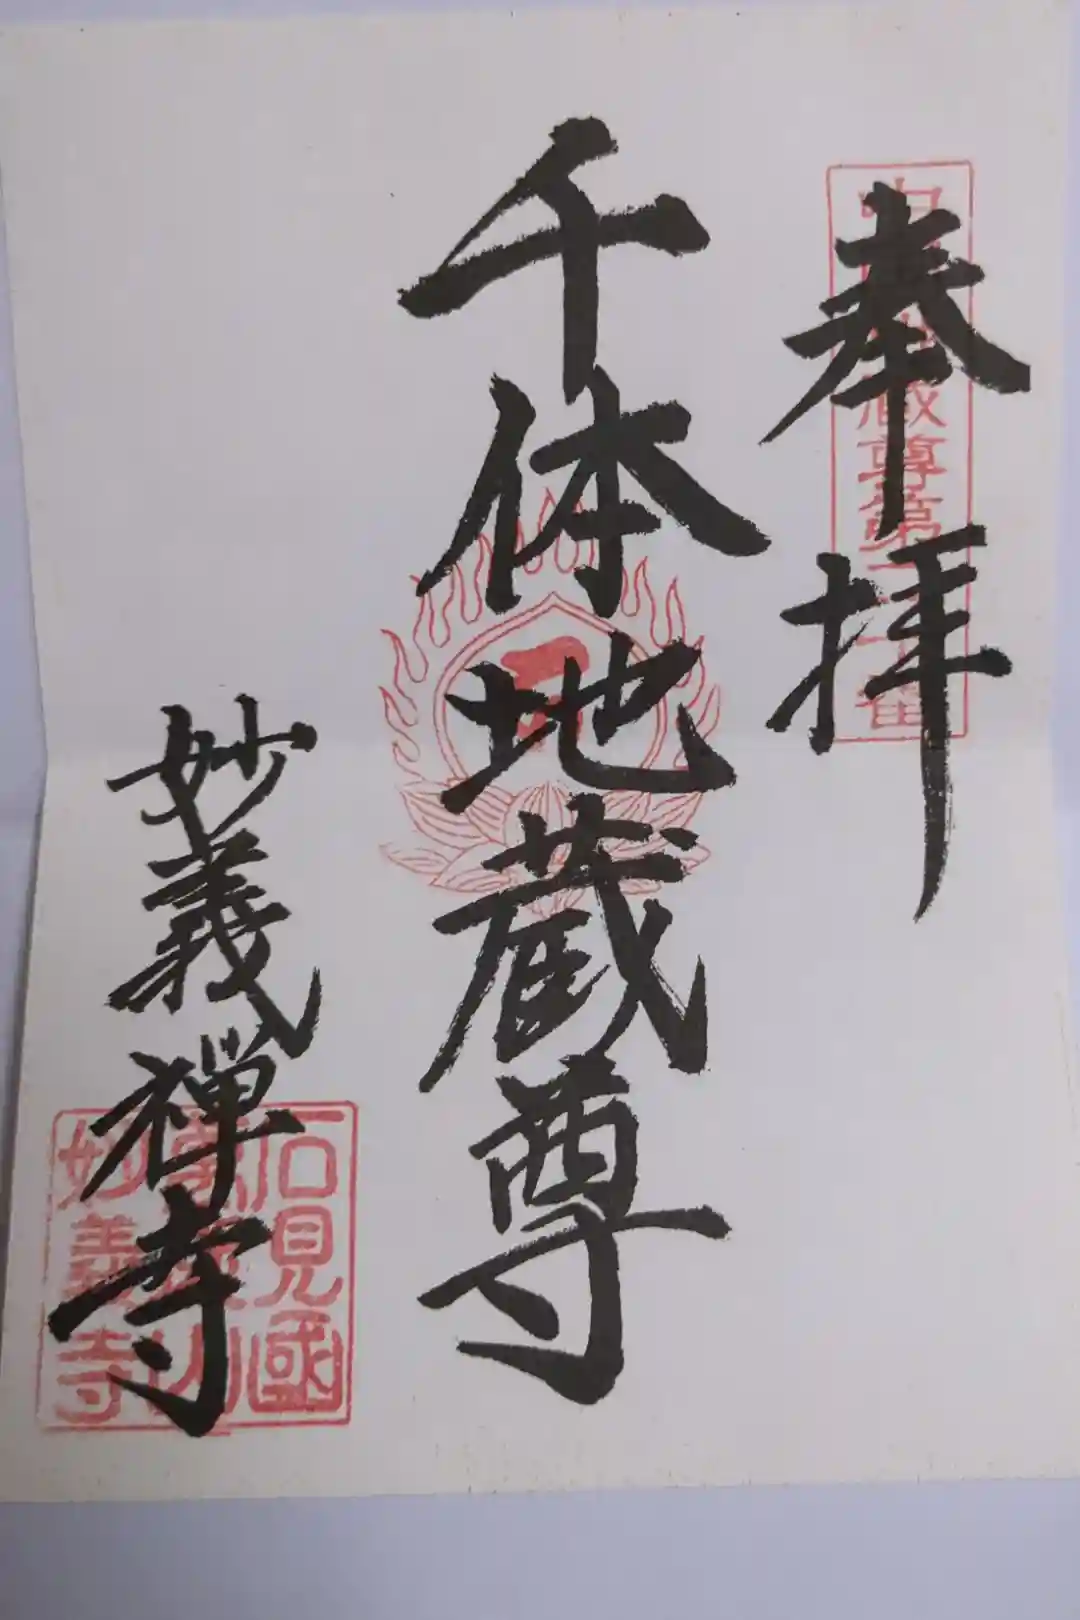 奉拝
蔵尊第二十番
千体地蔵尊
妙義禅寺
石見國
山
妙義寺